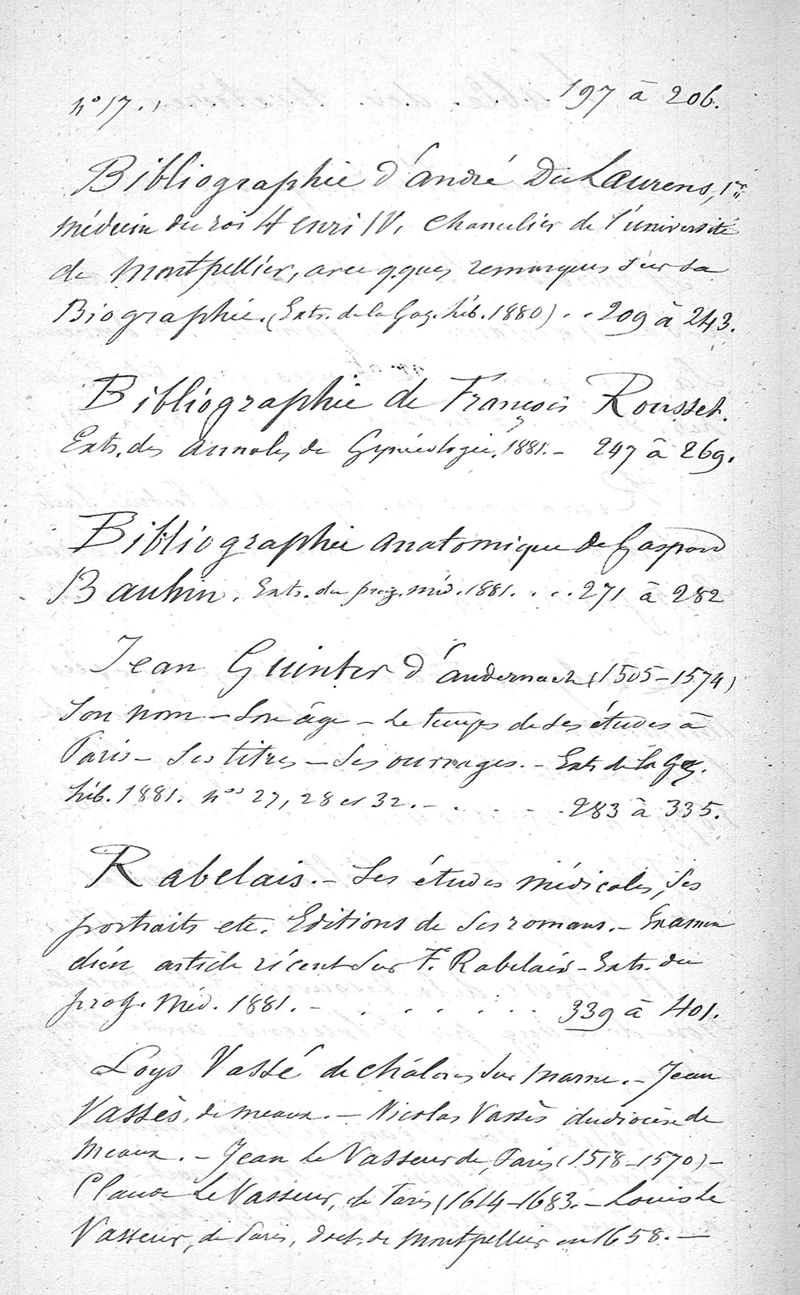 nº 17. , 197 à 206.
Bibliographie d'andré Du Laurens, 1er
médecin du roi Henri IV, chancelier de l'université
de Montpellier, avec q.ques remarques sur sa
Biographie. (Extr. de la Gaz. héb. 1880) . . 209 à 243.
Bibliographie de François Rousset.
Extr. des annales de Gynécologie, 1881. - 247 à 269.
Bibliographie anatomique de Gaspard
Bauhin. Extr. du prog. méd. 1881. . . . 271 à 282
Jean Guinter d'andernach (1505-1574)
Son nom - Son âge - Le temps de ses études à
Paris - Ses titres - Ses ouvrages. - Extr. de la Gaz.
héb. 1881. nos 27, 28 et 32. - . . . . 283 à 335.
Rabelais. - Ses études médicales, ses
portraits etc. Editions de ses romans. - Examen
d'un article récent sur F. Rabelais - Extr. du
prog. Méd. 1881. - . . . . . . 339 à 401.
Loys Vassé de châlons sur marne. - Jean
Vassès, de meaux. - Nicolas Vassès du diocèse de
Meaux. - Jean le Vasseur de Paris (1518-1570) -
Claude Le Vasseur, de Paris (1614-1683. - Louis le
Vasseur, de Paris, doct. de Montpellier en 1658. -